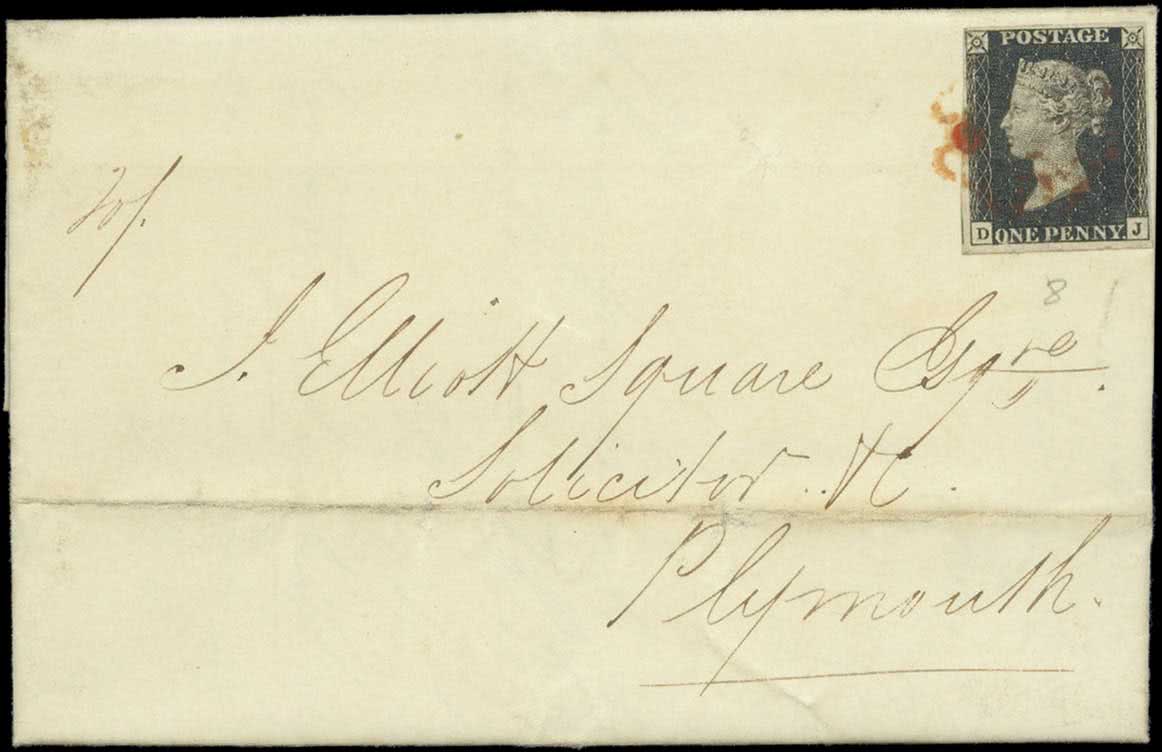 POSTAGE
D ONE PENNY. J
8
J. Elliott Square Esqre.
Solicitor &c.
Plymouth.